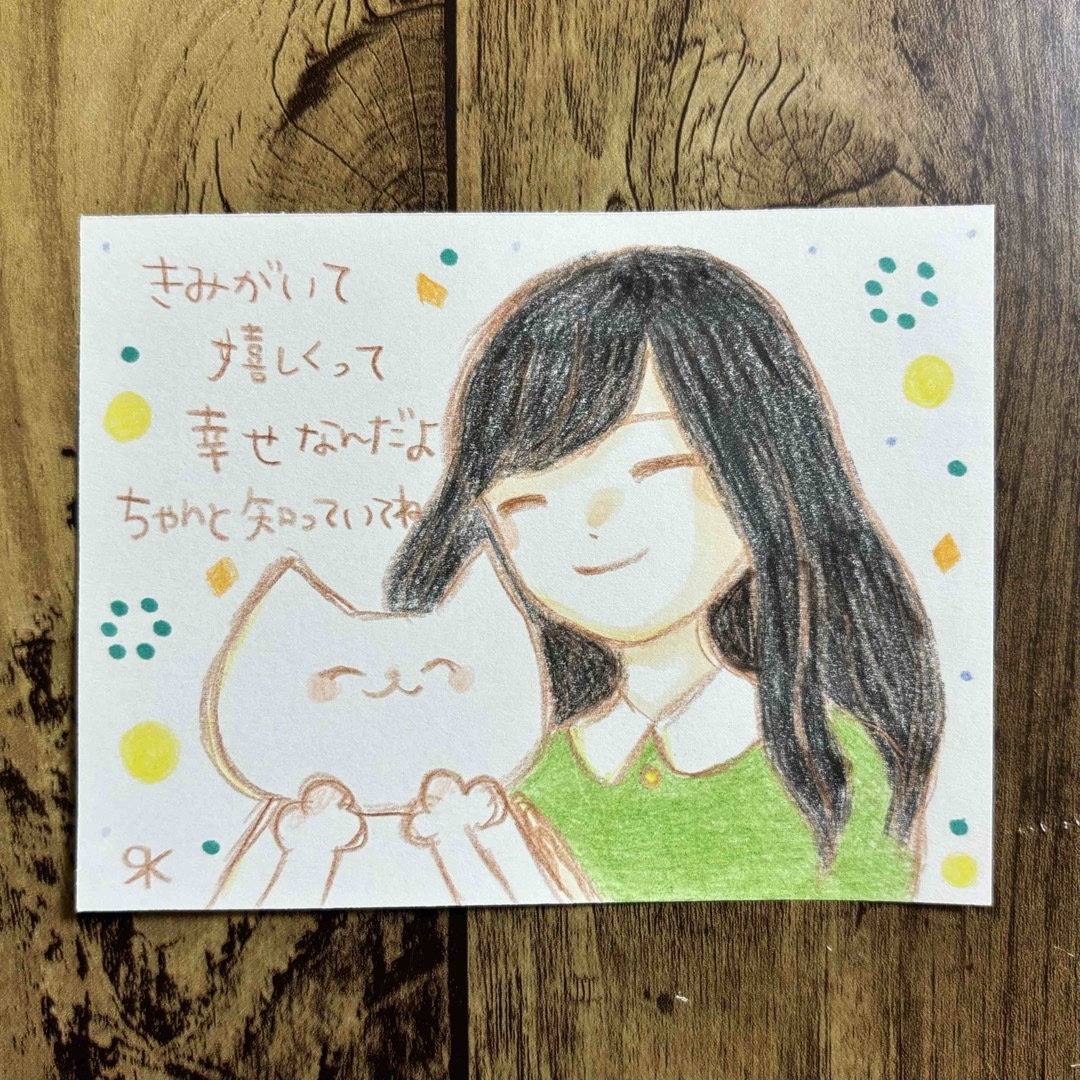 きみがいて
嬉しくって
幸せなんだよ
ちゃんと知っていてね